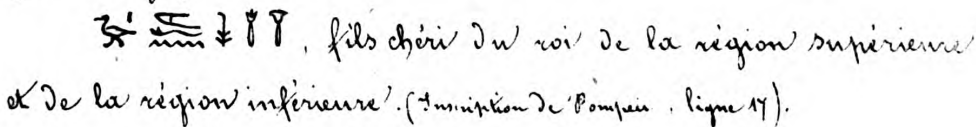 , fils chéri du roi de la région supérieure
et de la région inférieure. (Inscription de Pompeii, ligne 17).